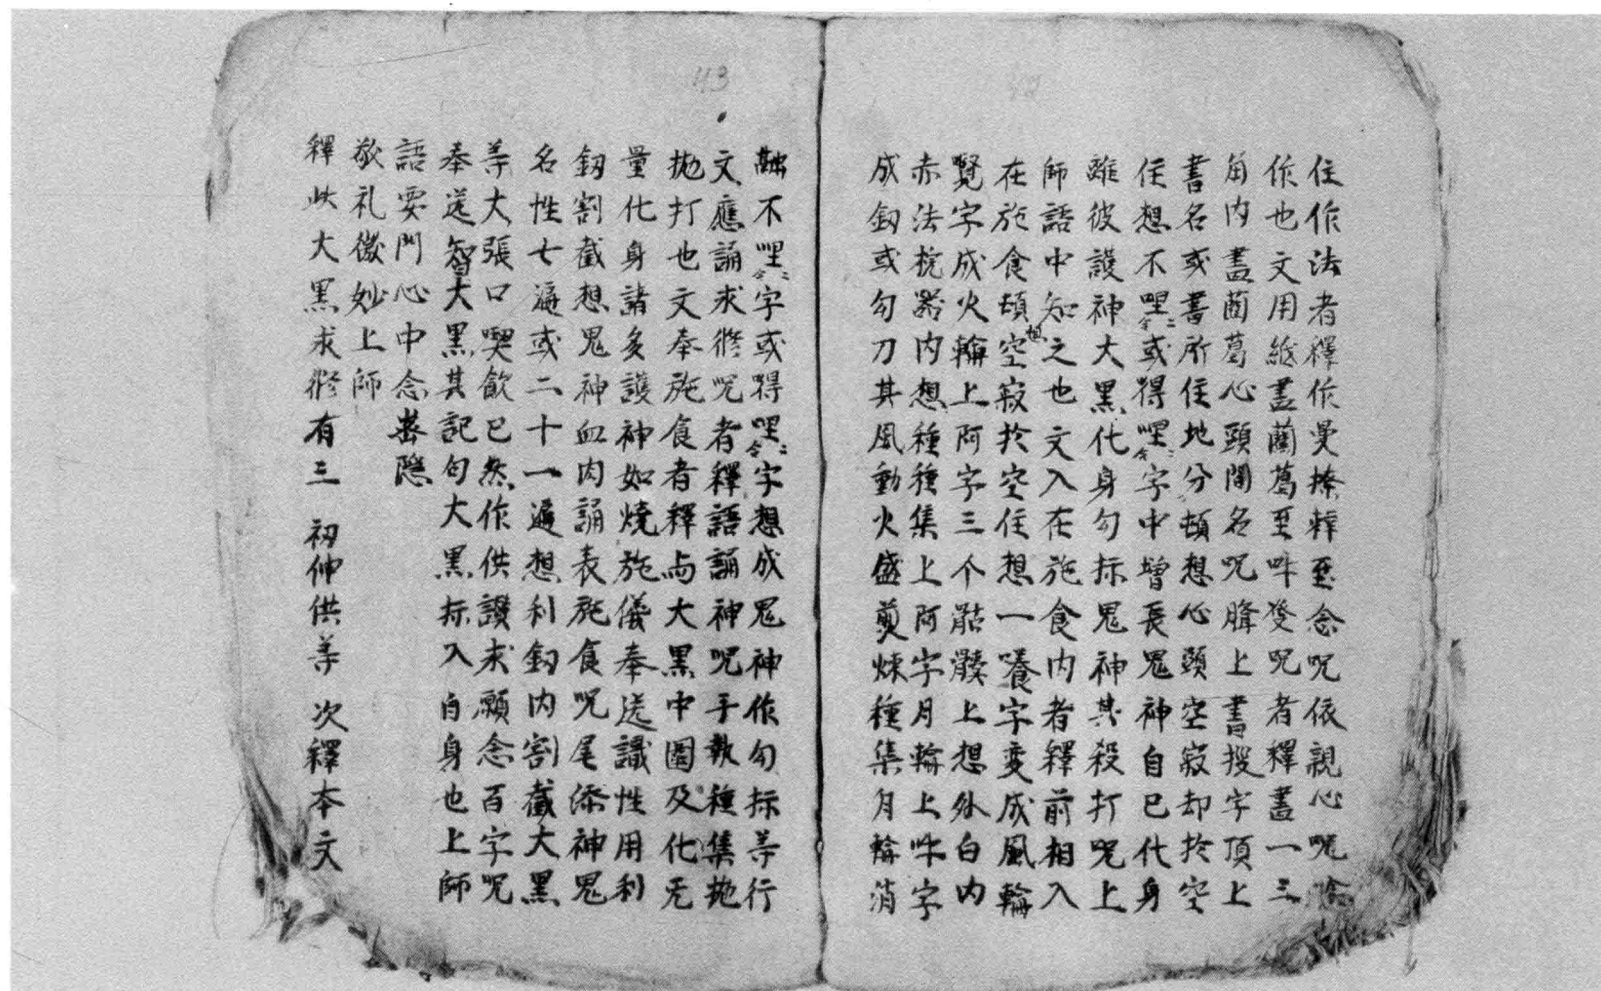 住作法者釋作曼捺辢至念呪依親心呪
作也文用紙畫蘭葛至吽發呪者釋畫一三
角内畫蘭葛心頭閣名呪降上書授字頂上
書名或書所住地分頓想心頭空寂却於空
住想不哩二合或得哩二合字中增長鬼神自已化身
離彼護神大黑化身勾捺鬼神其殺打呪上
師語中知之也文入在施食内者釋前相入
在施食頓空寂於空住想一養字變成風輪
覽字成火輪上阿字三个骷髏上想外白内
赤法梡器内想種種集上阿字月輪上吽字
成釰或勾刀其風動火盛煎煉種集月輪消
融不哩二合字或得哩二合字想成鬼神作勾捺等行
文應誦求修呪者釋語誦神呪手執種集拋
拋打也文奉施食者釋与大黑中圍及化无
量化身諸多護神如燒施儀奉送識性用利
釰割截想鬼神血肉誦表施食呪尾添神鬼
名性七遍或二十一遍想利釰内割截大黑
等大張口喫飲已然作供讚求願念百字呪
奉送智大黑其記句大黑捺入自身也上師
語要門心中念
敬礼微妙上師
釋此大黑求修有三 初伸供等 次釋本文
43